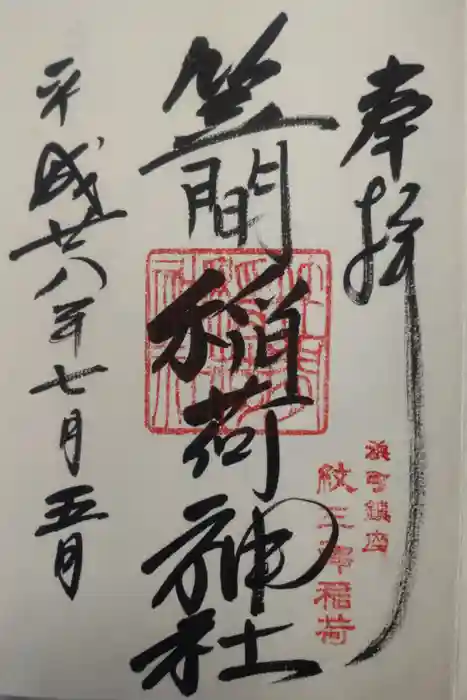 奉拝
濱町鎮座
紋三郎稲荷
笠間稲荷神社
平成廿八年七月五日